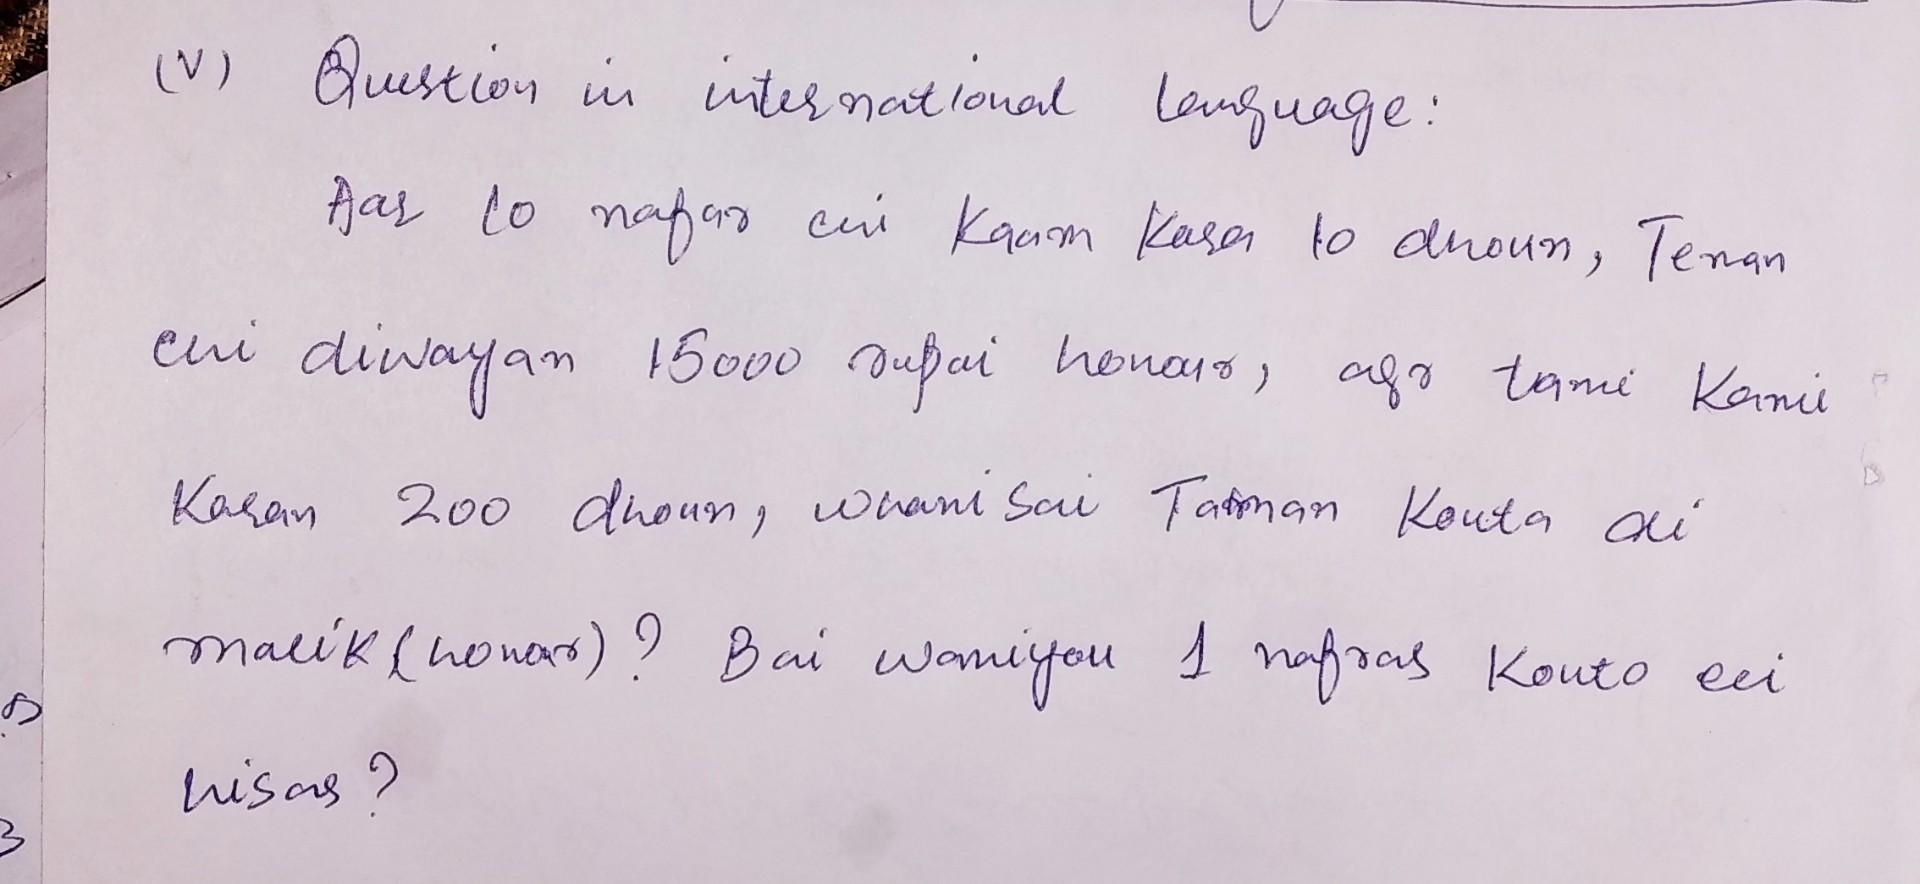 (V) Question in international language:
Aar 10 nafar cui Kaam Kara 10 dhoun, Tenan
cui diwayan 15000 rupai honar, agr tami Kami
Karan 200 dhoun, whani sai Taman Kouta di
malik (honar)? Bai wamiyou 1 nafras Kouto eci
hisas?